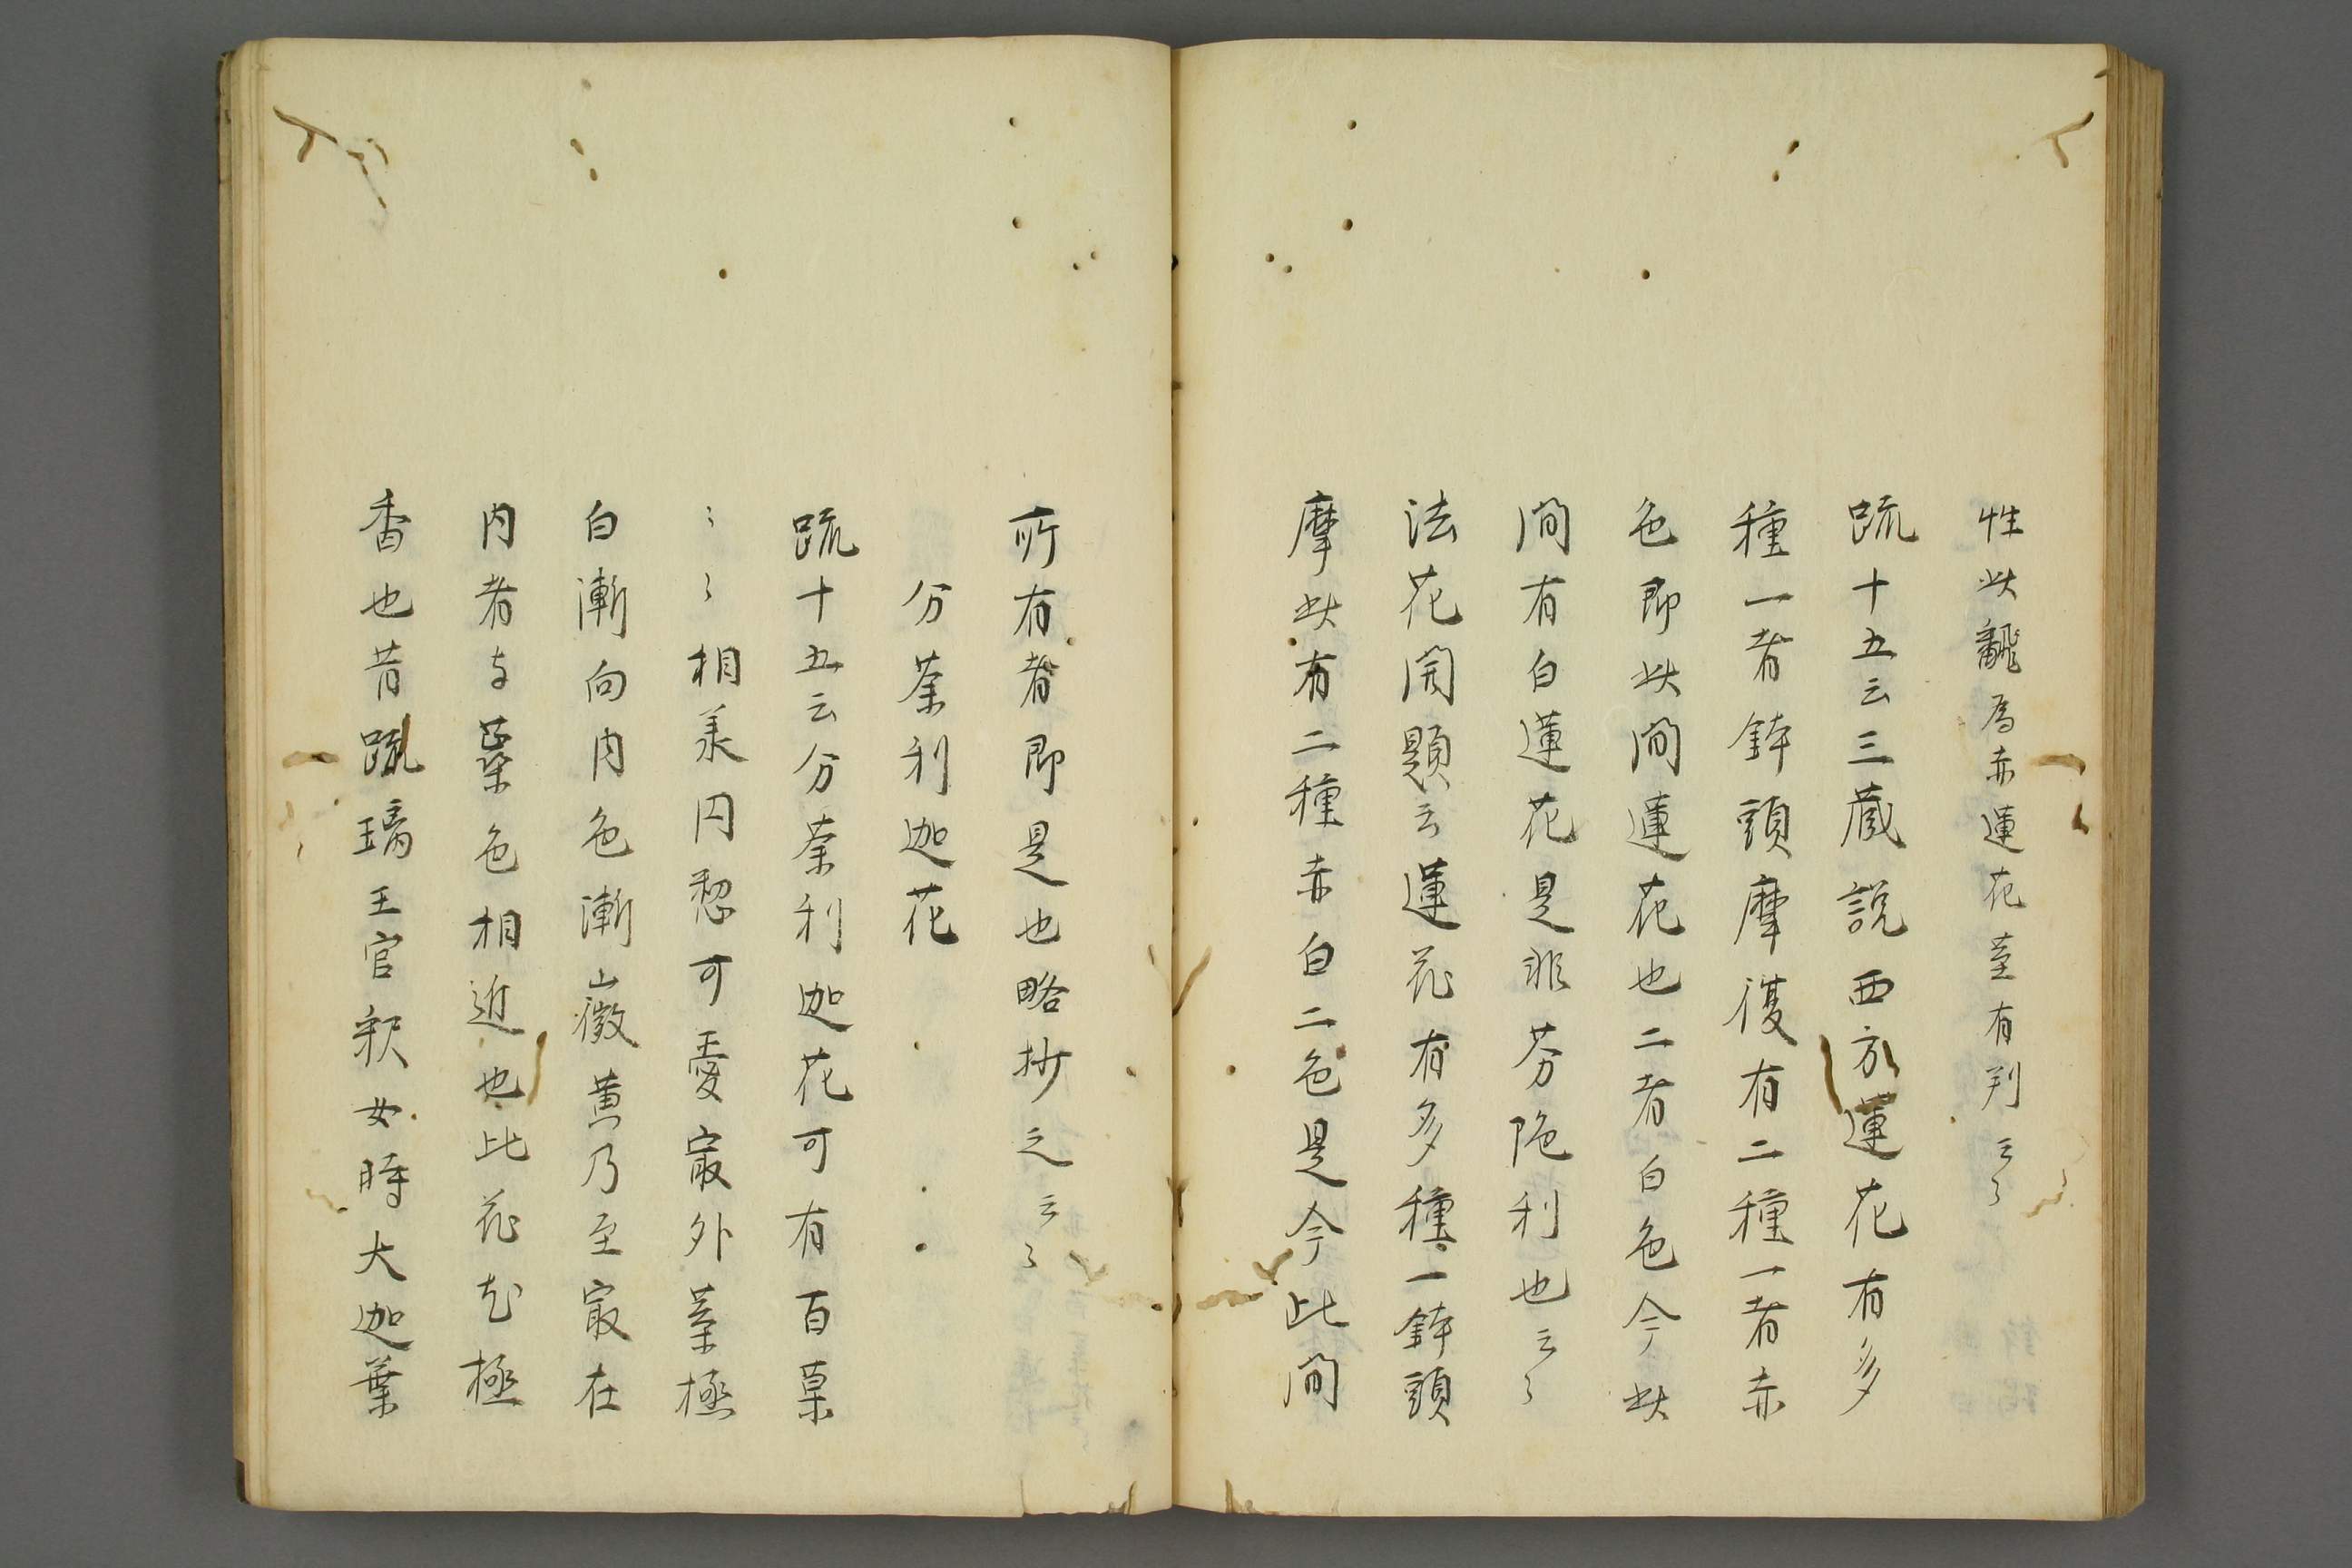 性此飜為赤蓮花臺有判云々
䟽十五云三蔵說西方蓮花有多
種一者鉢頭摩復有二種一者赤
色即此間蓮花也二者白色今此
間有白蓮花是非芬陁利也云々
法花開題云蓮花有多種一鉢頭
摩此有二種赤白二色是今此間
所有者即是也略抄之云々
分荼利迦花
䟽十五云分荼利迦花可有百葉
〻〻相美円整可愛㝡外葉極
白漸向内色漸微黄乃至㝡在
内者与蘂色相近也此花花極
香也昔琉璃王官釈女時大迦葉